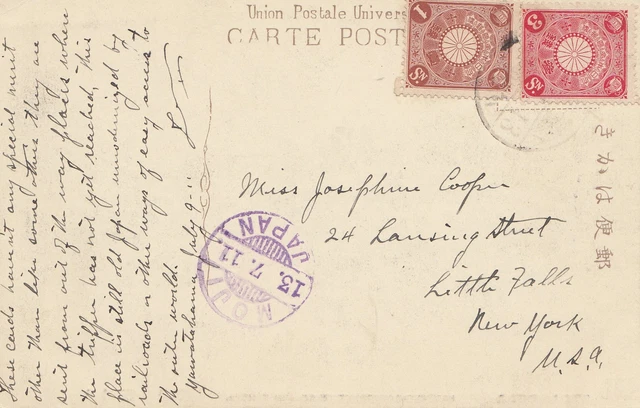 Union Postale Univers
CARTE POST
1 Sn.
3 Sn.
きかは便郵
These cards haven't any special merit
other than like some others they are
sent from out of the way places where
the tripper has not yet reached, this
place is still old Japan unmodernized by
railroads or other ways of easy access to
the outer world.
Yawatahama July 9-11
Miss Josephine Cooper
24 Lansing Street
Little Falls
New York
U.S.A.
MOJI
13.7.11
JAPAN